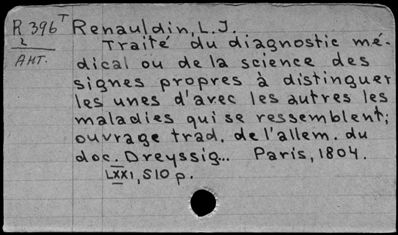 R 396 T Renauldin, L. J.
2 Traité du diagnostic mé-
Ант. dical ou de la science des
signes propres à distinguer
les unes d'avec les autres les
maladies qui se ressemblent;
ouvrage trad. de l'allem. du
doc. Dreyssig... Paris, 1804.
LXXI, 510 p.